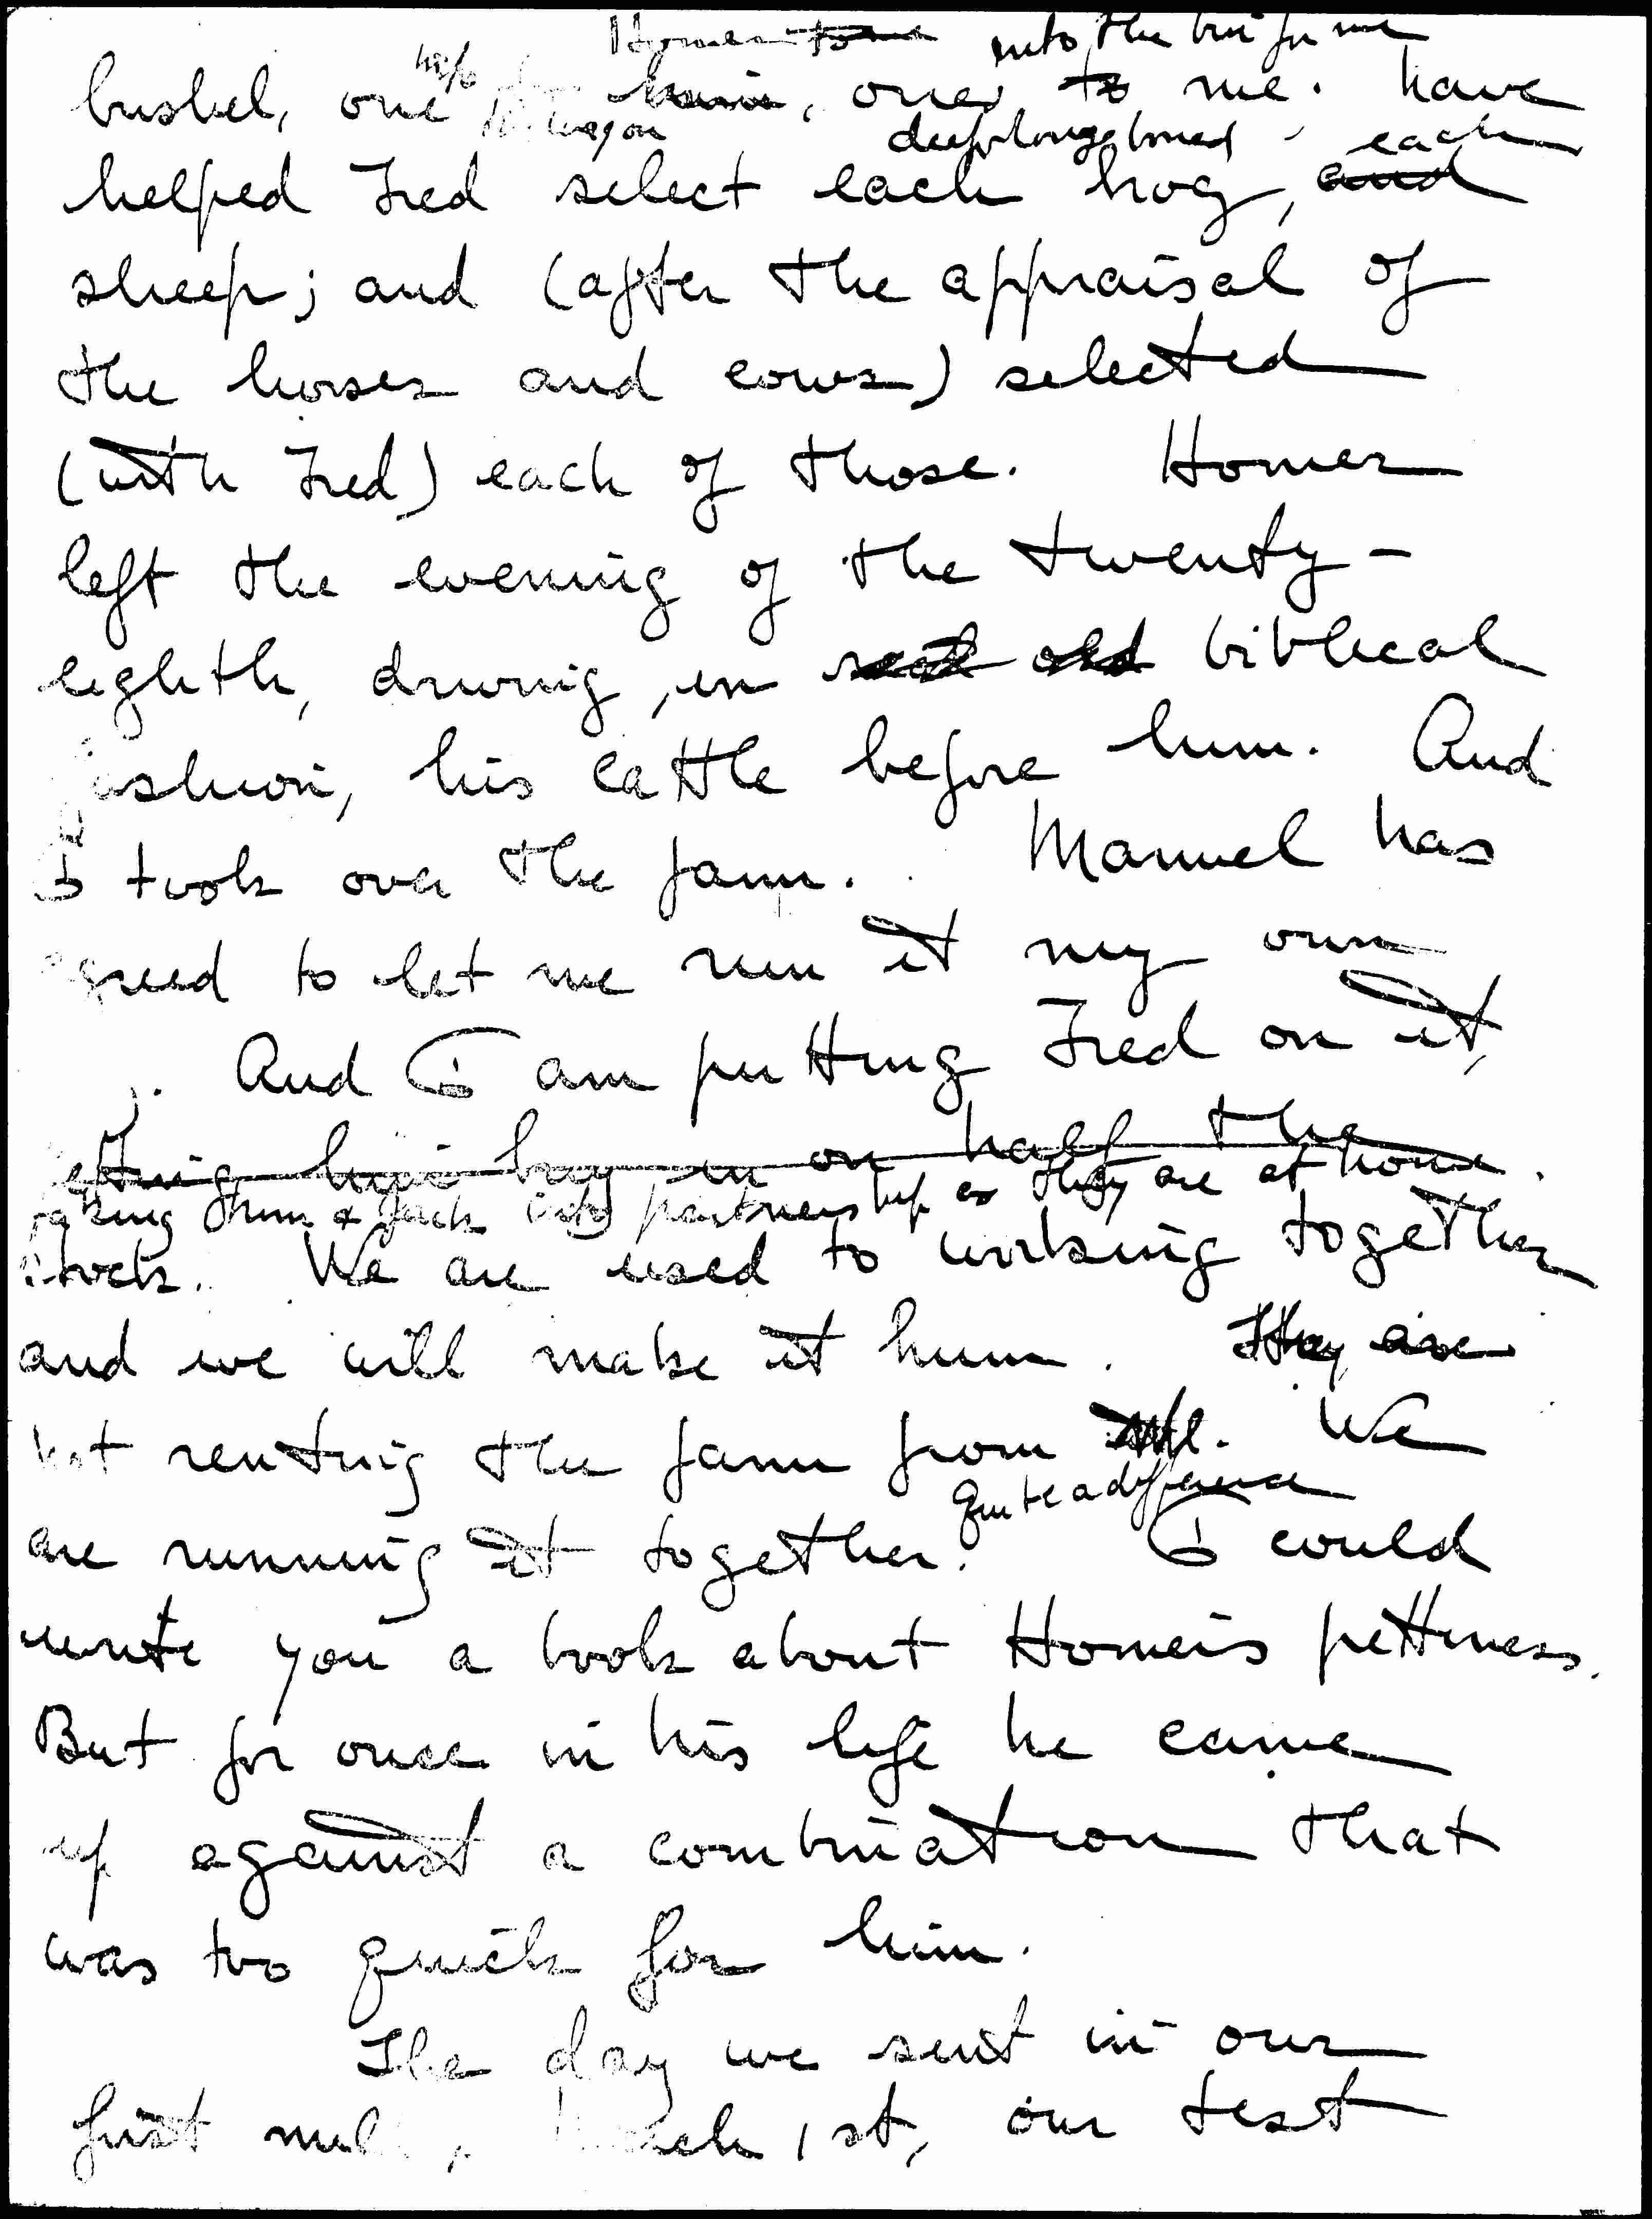 Homer to me into the bin for me
bushel, one into him, one, to me. have
wagon deep long boned each
helped Fred select each hog, and
sheep; and (after the appraisal of
the horses and cows) selected
(with Fred) each of those. Homer
left the evening of the twenty-
eighth, driving, in old biblical
fashion, his cattle before him. And
I took over the farm. Manuel has
agreed to let me run it my own
And I am putting Fred on it,
letting him buy in on half the
making them & Jack into partnership as they are at home.
stock. We are used to working together
and we will make it hum. They are
not renting the farm from me. We
quite a difference
are running it together. I could
write you a book about Homer's pettiness.
But for once in his life he came
up against a combination that
was too quick for him.
The day we sent in our
first milk, March 1st, our test